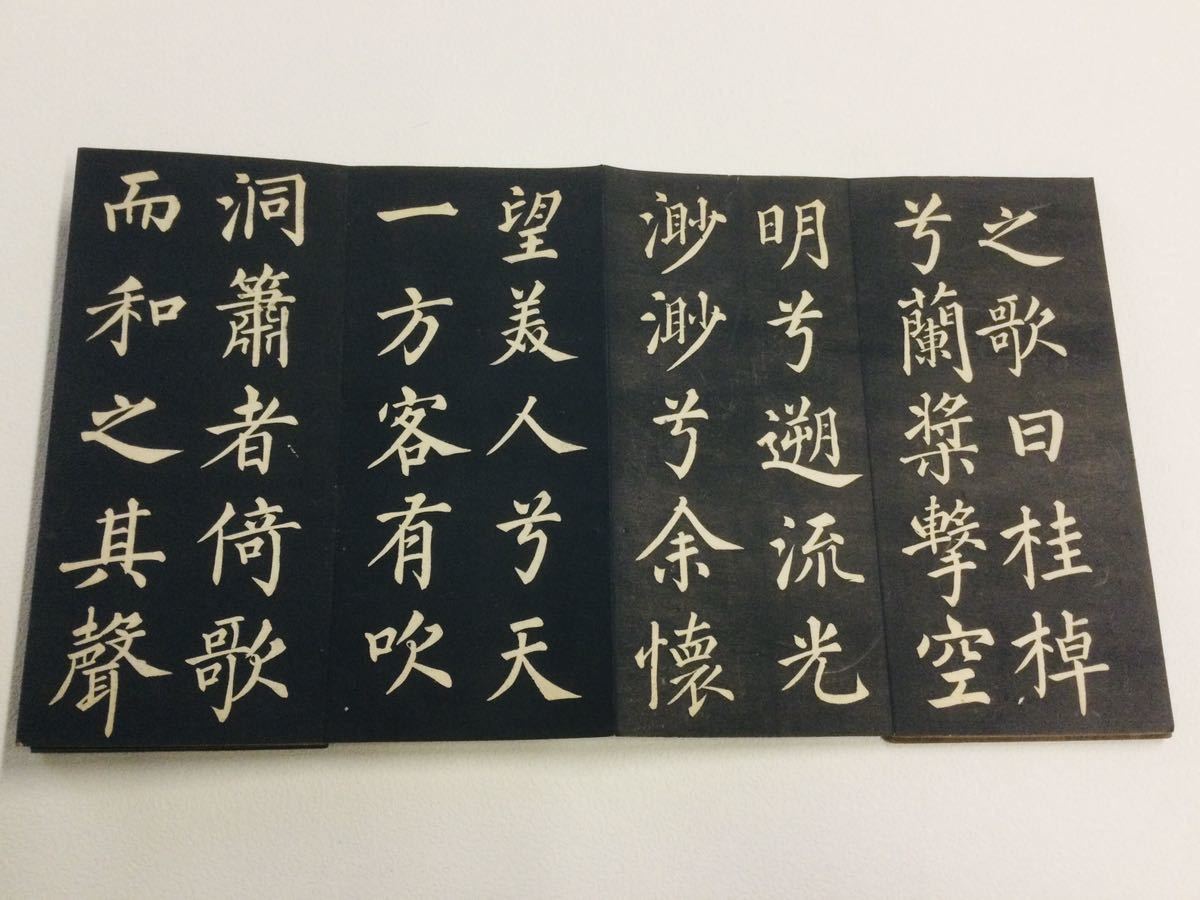 之歌曰桂棹
兮蘭槳擊空
明兮遡流光
渺渺兮余懷
望美人兮天
一方客有吹
洞簫者倚歌
而和之其聲